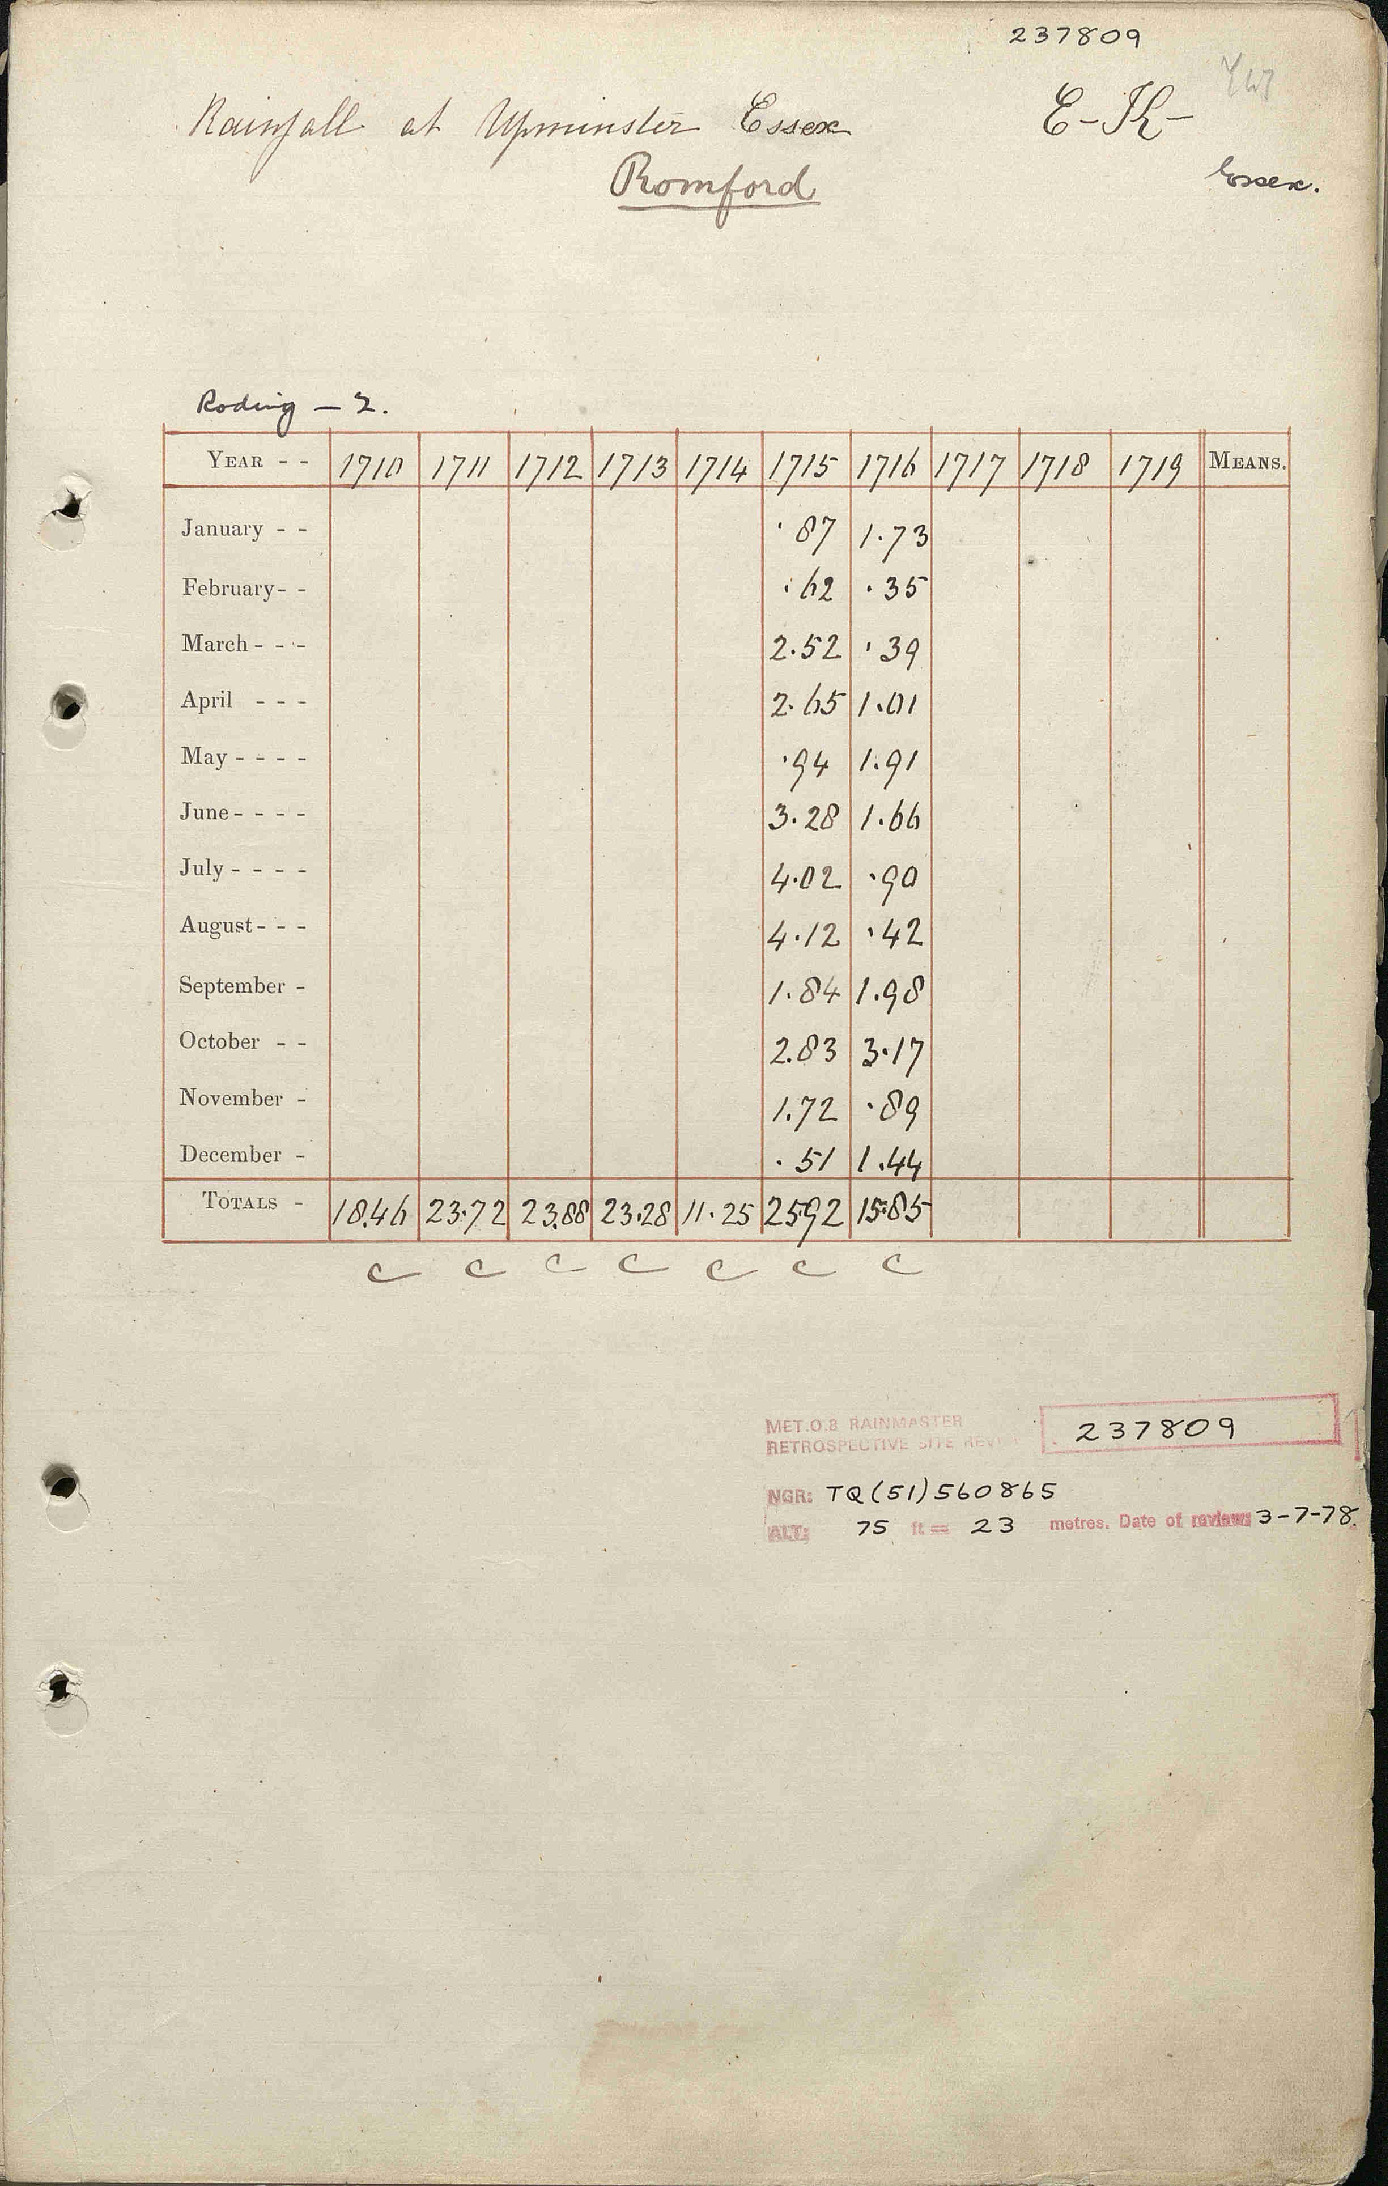 237809
Rainfall at Upminster Essex E-K-
Romford Essex.
Roding — 2.
YEAR - - 1710 1711 1712 1713 1714 1715 1716 1717 1718 1719 MEANS.
January - - .87 1.73
February- - .62 .35
March - - - 2.52 .39
April - - - 2.65 1.01
May - - - - .94 1.91
June - - - - 3.28 1.66
July - - - - 4.02 .90
August - - - 4.12 .42
September - 1.84 1.98
October - - 2.83 3.17
November - 1.72 .89
December - .51 1.44
TOTALS - 18.46 23.72 23.88 23.28 11.25 25.92 15.85
C C C C C C C
MET.O.8 RAINMASTER
RETROSPECTIVE SITE REV 237809
NGR: TQ(51)560865
ALT: 75 ft = 23 metres. Date of review: 3-7-78.